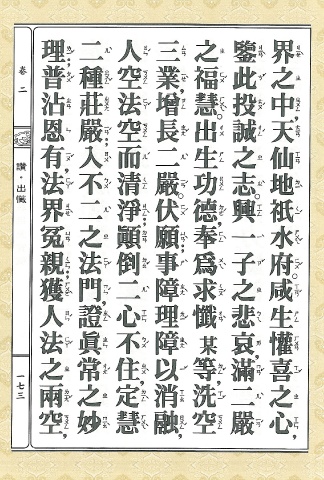 界之中,天仙地祇水府咸生懽喜之心,
鑒此投誠之志。興一子之悲哀,滿二嚴
之福慧。出生功德,奉為求懺某等,洗空
三業,增長二嚴。伏願事障理障以消融,
人空法空而清淨。顚倒二心不住,定慧
二種莊嚴。入不二之法門,證眞常之妙
理。普沾恩有,法界冤親。獲人法之兩空,
卷二
讚·出懺
一七三